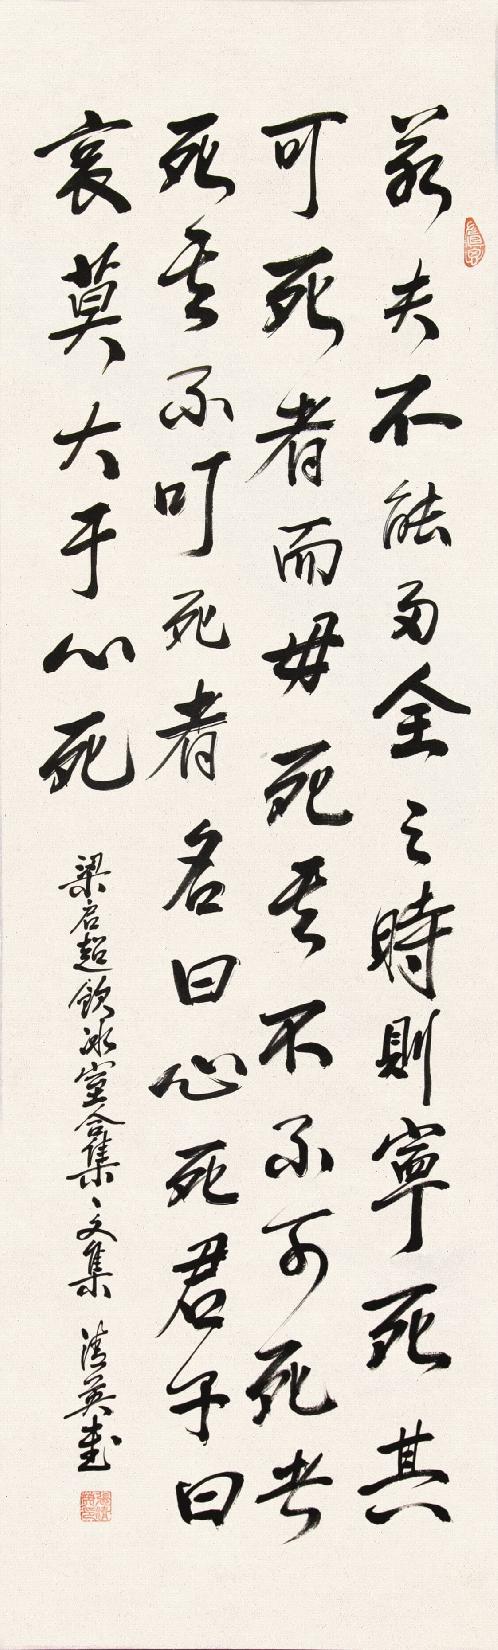 若夫不能两全之時則寧死其
可死者而毋死其不不可死者
死其不可死者名曰心死君子曰
哀莫大于心死
梁启超飲冰室合集、文集 清英書